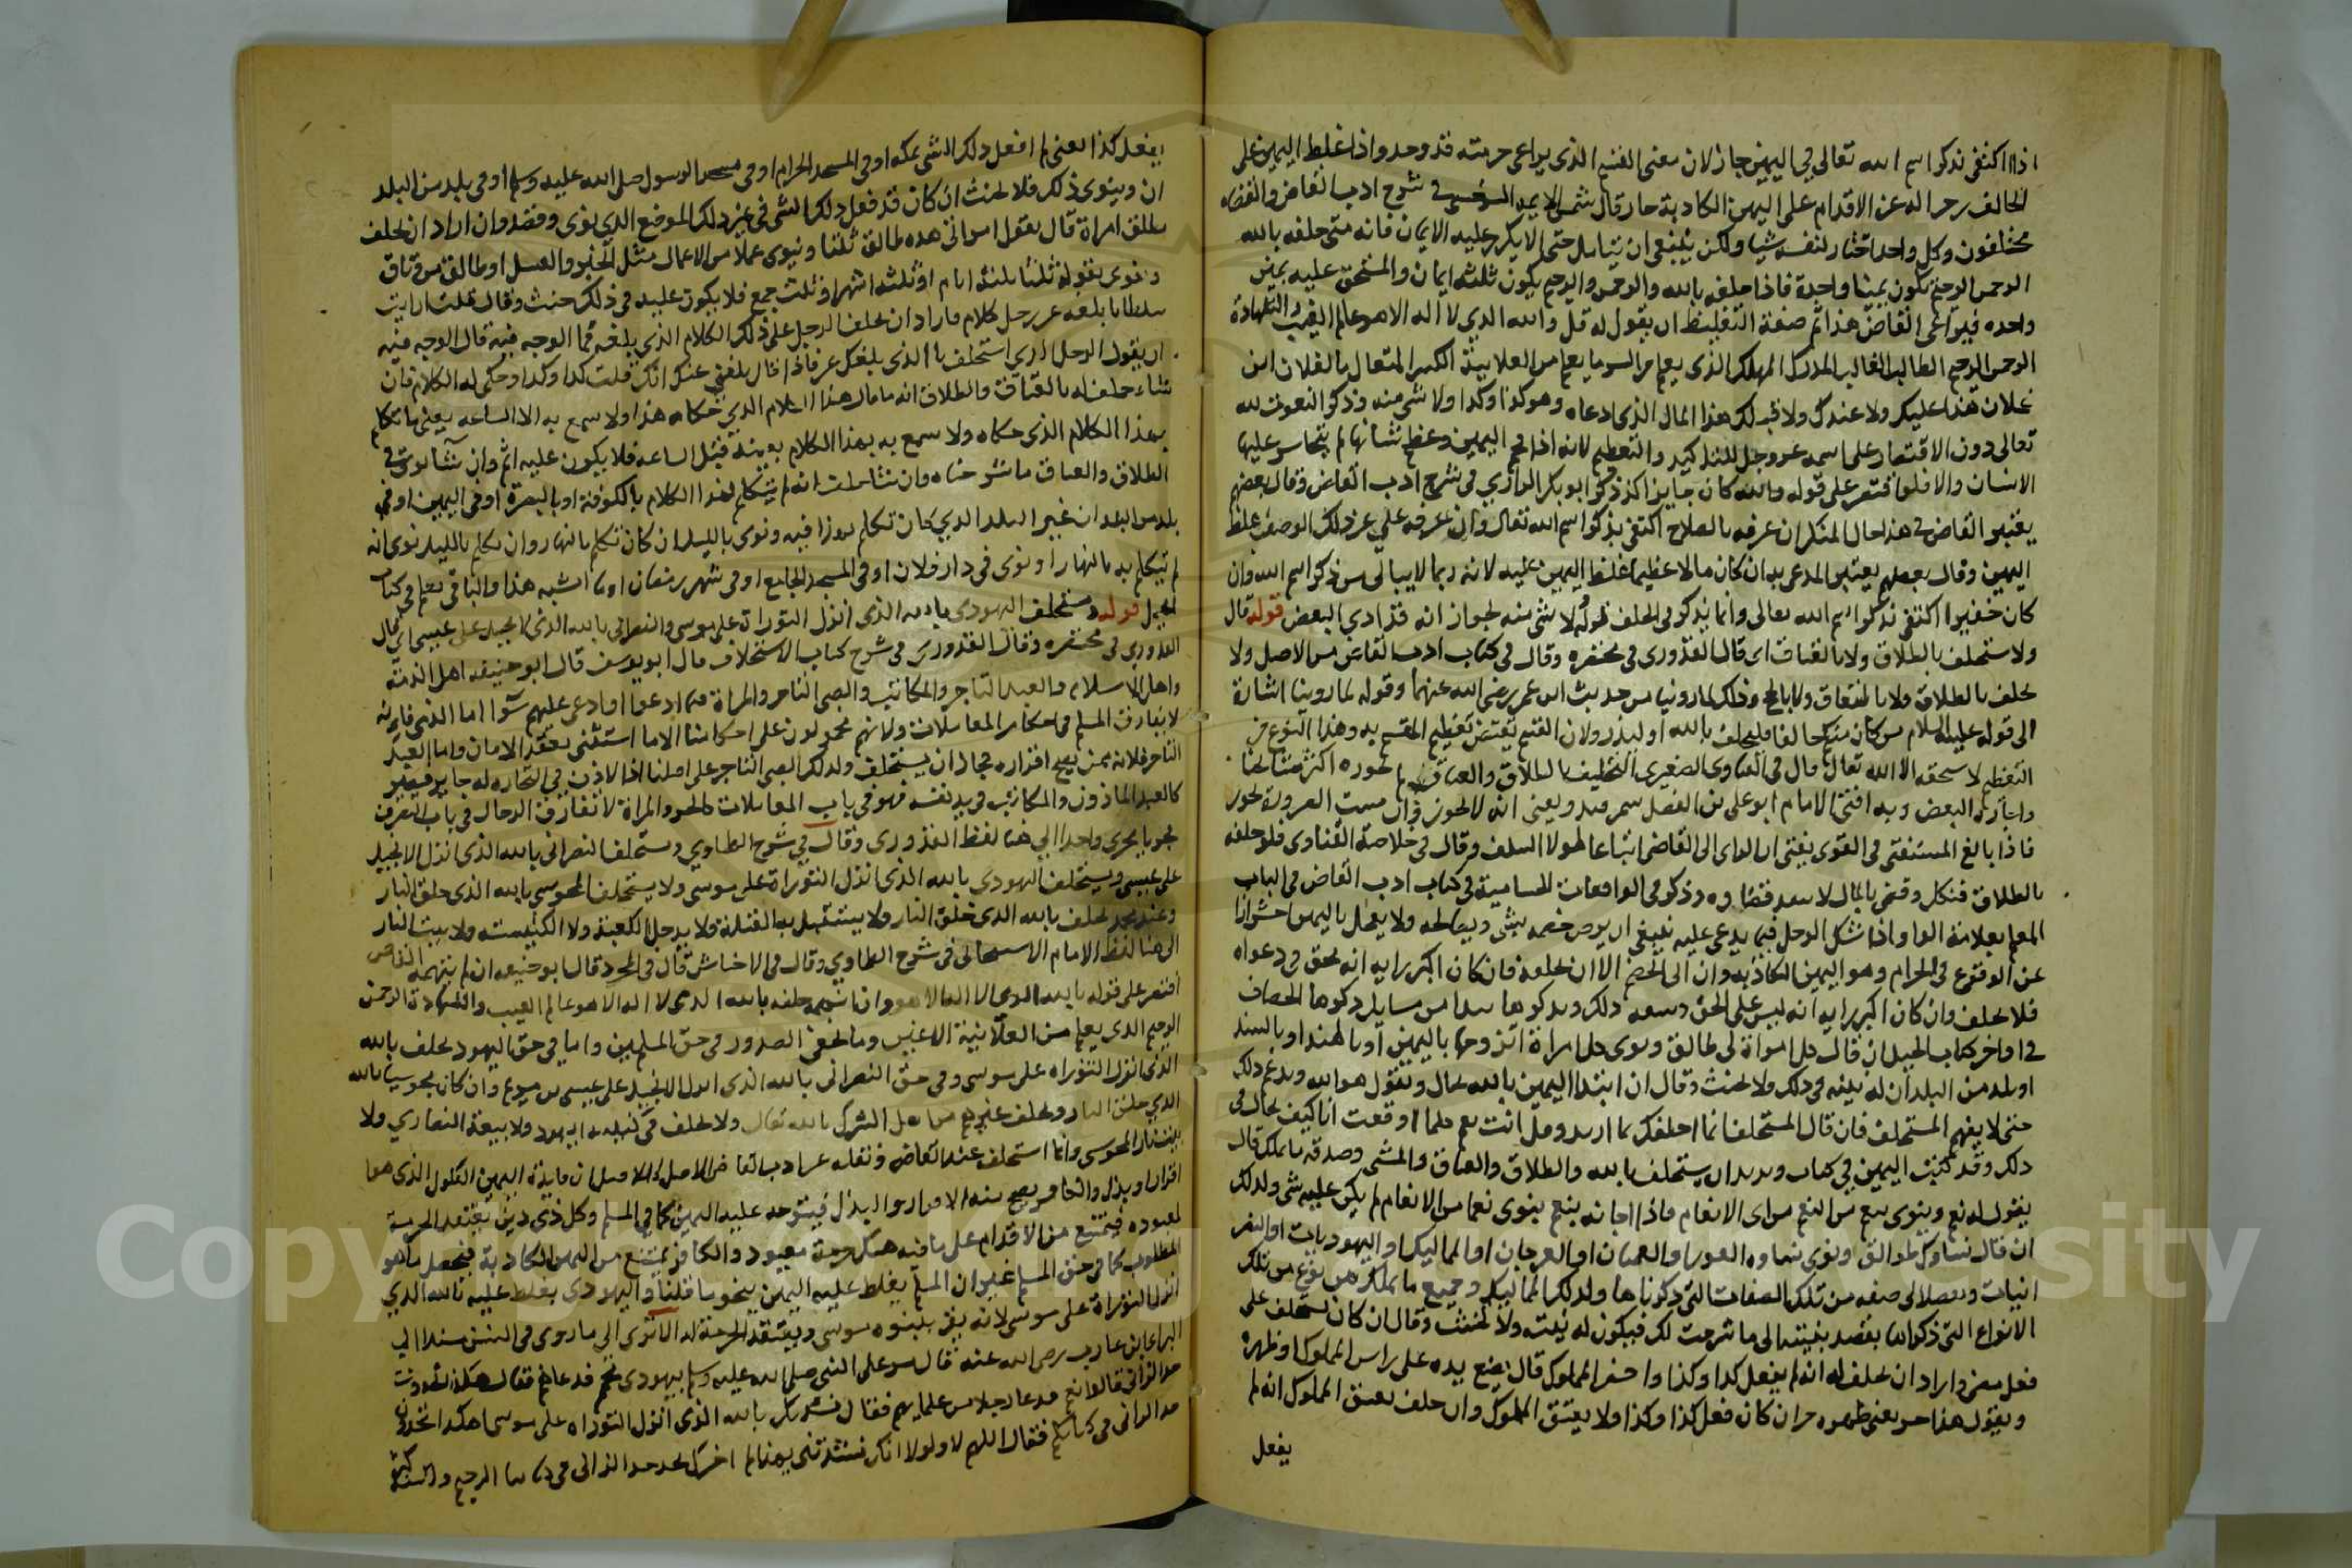 اذا اكتفى بذكر اسم الله تعالى في اليمين جاز لان معنى القسم الذى يراعى حرمته قد وجد واذا غلظ اليمين على
الحالف رجراله عن الاقدام على اليمين الكاذبة جاز قال شمس الايمه السرخسي في شرح ادب القاضى والقضاه
مختلفون وكل واحد تختار لنفسه شيا ولكن ينبغى ان يتامل حتى لا يكرر عليه الايمان فانه متى حلفه بالله
الرحمن الرحيم تكون يمينا واحدة فاذا حلفه بالله والرحمن والرحيم يكون ثلثه ايمان والمستحق عليه يمين
واحده فيراعى القاضى هذا ثم صفة التغليظ ان يقول له قل والله الذى لا اله الا هو عالم الغيب والشهادة
الرحمن الرحيم الطالب الغالب المدرك المهلك الذى يعلم من السر ما يعلم من العلانية الكبير المتعال ما لفلان ابن
فلان هذا عليك ولا عندك ولا قبلك هذا المال الذى ادعاه وهو كذا وكذا ولا شى منه وذكر النعوت لله
تعالى دون الاقتصار على اسمه عز وجل للتاكيد والتعظيم لانه اذا فخم اليمين وعظم شانها لم يتجاسر عليها
الانسان والا فلو اقتصر على قوله والله كان جايزا كذا ذكر ابو بكر الرازي في شرح ادب القاضى وقال بعضهم
يعتبر القاضى في هذا حال المنكر ان عرفه بالصلاح اكتفى بذكر اسم الله تعالى وان عرفه على غير ذلك الوصف غلظ
اليمين وقال بعضهم يعتبر المدعى به ان كان مالا عظيما غلظ اليمين عليه لانه ربما لا يبالى من ذكر اسم الله وان
كان حقيرا اكتفى بذكر اسم الله تعالى وانما يذكر في الحلف قوله ولا شى منه لجواز انه قد ادي البعض قوله قال
ولا ستحلف بالطلاق ولا بالعتاق اى قال القدورى في مختصره وقال في كتاب ادب القاضى من الاصل ولا
يحلف بالطلاق ولا بالعتاق ولا بالحج وذلك لما روينا من حديث ابن عمر رضى الله عنهما وقوله لما روينا اشارة
الى قوله عليه السلام من كان منكم حالفا فليحلف بالله او ليذر ولان القسم يقتضى تعظيم المقسم به وهذا النوع من
التعظيم لا يستحقه الا الله تعالى قال في الفتاوى الصغرى التحليف بالطلاق والعتاق لم يجوزه اكثر مشايخنا
واجازه البعض وبه افتى الامام ابو على بن الفضل سمرقند ويعنى انه لا يجوز فان مست الضرورة يجوز
فاذا بالغ المستفتى في الفتوى يفتى ان الراى الى القاضى اتباعا لهولا السلف وقال في خلاصة الفتاوى فلو حلفه
بالطلاق فنكل وقضى بالمال لا ينفذ قضاوه وذكر في الواقعات الحسامية في كتاب ادب القاضى في الباب
المعلم بعلامة الواو اذا شك الرجل فيما يدعى عليه ينبغى ان يرضى خصمه بشى ويصالحه ولا يعجل باليمين احترازا
عن الوقوع في الحرام وهو اليمين الكاذبه وان ابى الخصم الا ان يحلفه فان كان اكبر رايه انه محق في دعواه
فلا يحلف وان كان اكبر رايه انه ليس على الحق وسعه ذلك ونذكر هاهنا من مسايل ذكرها الخصاف
في اواخر كتاب الحيل ان قال كل امراة لى طالق ونوى كل امراة اتزوجها باليمين او بالهند او بالسند
او بلد من البلدان له نيته في ذلك ولا يحنث وقال ان ابتدا اليمين بالله يحتال ويقول هو الله ويدغم ذلك
حتى لا يفهم المستحلف فان قال المستحلف انما احلفك بما اريد وقل انت نعم كلما اوقفت انا كيف يحتال في
ذلك وقد كتبت اليمين في كتاب ويريد ان يستحلف بالله والطلاق والعتاق والمشى وصدقه ما يملك قال
يقول له نعم وينوى بنعم من النعم من اى الانعام فاذا اجابه بنعم ينوى نعما من الانعام لم يكن عليه شى وكذلك
ان قال نساوك طوالق ونوى نساوه العورا والعميان او العرجان او المماليك او اليهوديات او النصر
انيات ويقصد الى صفه من تلك الصفات التى ذكرناها وكذلك المماليك وجميع ما يملك من نوع من تلك
الانواع التى ذكرها يقصد بنيته الى ما شرحت لك فيكون له نيته ولا يحنث وقال ان كان يستحلف على
فعل مضى واراد ان يحلف له انه لم يفعل كذا وكذا واحضر المملوك قال يضع يده على راس المملوك او ظهره
ويقول هذا حر يعنى ظهره حر ان كان فعل كذا وكذا ولا يعتق المملوك وان حلف بعتق المملوك انه لم
يفعل
يفعل كذا يعنى لم افعل ذلك الشى بمكه او في المسجد الحرام او في مسجد الرسول صلى الله عليه وسلم او في بلد من البلد
ان وينوى ذلك فلا يحنث ان كان قد فعل ذلك الشى في غير ذلك الموضع الذي نوى وقصد وان اراد ان يحلف
بطلاق امراة قال يقول امراتى هذه طالق ثلثا وينوى عملا من الاعمال مثل الخبز والغسل او طالق من وثاق
ونوى بقوله ثلثا ثلثه ايام او ثلثه اشهر او ثلث جمع فلا يكون عليه في ذلك حنث وقال قلت ارايت
سلطانا بلغه عن رجل كلام فاراد ان يحلف الرجل على ذلك الكلام الذي بلغه فما الوجه فيه قال الوجه فيه
ان يقول الرجل الذي استحلف ما الذى بلغك عنى فاذا قال بلغنى عنك انك قلت كذا وكذا وحكى له الكلام فان
شاء حلف له بالعتاقة والطلاق انه ما قال هذا الكلام الذي حكاه هذا ولا سمع به الا الساعه يعنى ما تكلم
بهذا الكلام الذى حكاه ولا سمع به بهذا الكلام بعينه قبل الساعه فلا يكون عليه اثم وان شا نوى في
الطلاق والعتاق ما شرحناه وان شا حلف انه لم يتكلم بهذا الكلام بالكوفة او بالبصرة او في اليمين او في
بلد من البلدان غير البلد الذي كان تكلم بهذا فيه ونوى بالليل ان كان تكلم بالنهار وان تكلم بالليل نوى انه
لم يتكلم به بالنهار او نوى في دار فلان او في المسجد الجامع او في شهر رمضان او ما اشبه هذا والباقى يعلم في كتاب
الحيل قوله ويستحلف اليهودى بالله الذى انزل التوراة على موسى والنصرانى بالله الذى الانجيل على عيسى اى قال
القدورى في مختصره وقال القدورى في شرح كتاب الاستحلاف قال ابو يوسف قال ابو حنيفه اهل الذمة
واهل الاسلام والعبد التاجر والمكاتب والصبى التاجر والمراة فيما ادعوا او ادعى عليهم سوا اما الذمى فلانه
لا يفارق المسلم في احكام المعاملات ولانهم محمولون على احكامنا الا ما استثنى بعقد الامان واما العبد
التاجر فلانه ممن يصح اقراره فجاز ان يستحلف وكذلك الصبى التاجر على اصلنا اذ الاذن في التجاره له جايز فيصير
كالعبد الماذون والمكاتب في يد نفسه فهو في باب المعاملات كالحر والمراة لا تفارق الرجال في باب التصرف
فجريا مجرى واحدا الى هنا لفظ القدورى وقال في شرح الطحاوي ويستحلف النصرانى بالله الذى انزل الانجيل
على عيسى ويستحلف اليهودي بالله الذى انزل التوراة على موسى ولا يستحلف المجوسى بالله الذى خلق النار
وعند محمد يحلف بالله الذى خلق النار ولا يستقبل به القبلة ولا يدخل الكعبة ولا الكنيسته ولا بيت النار
الى هنا لفظ الامام الاسبيجابى في شرح الطحاوي وقال في الاجناس قال في المجرد قال ابو حنيفه ان لم يتهمه القاضى
اقتصر على قوله بالله الذى لا اله الا هو وان اتهمه حلفه بالله الذى لا اله الا هو عالم الغيب والشهادة الرحمن
الرحيم الذى يعلم من العلانية الاعين وما تخفى الصدور في حق المسلمين واما في حق اليهود يحلف بالله
الذى انزل التوراه على موسى وفي حق النصرانى بالله الذى انزل الانجيل على عيسى بن مريم وان كان مجوسيا بالله
الذي خلق النار ويحلف غيرهم من اهل الشرك بالله تعالى ولا يحلف في كنيسه اليهود ولا بيعة النصارى ولا
بيت نار المجوسى وانما استحلف عند القاضى ونقله عن ادب القاضى الاصل ان فايدة اليمين النكول الذى هو
اقرار او بذل والكافر يصح منه الاقرار والبذل فيتوجه عليه اليمين كما في المسلم وكل ذي دين يعتقد الحرمة
لمعبوده فيمتنع من الاقدام على ما فيه هتك حرمة معبوده والكافر يمتنع من اليمين الكاذبة فيحصل ما هو
المطلوب كما في حق المسلم غير ان المسلم يغلظ عليه اليمين بنحو ما قلنا واليهودى يغلظ عليه بالله الذي
انزل التوراة على موسى لانه يقر بنبوه موسى ويعتقد الحرمة له الا ترى الى ما روى في السنن مسندا الى
البراء بن عازب رضى الله عنه قال مر على النبى صلى الله عليه وسلم بيهودى محمم فدعاهم فقال هكذا تجدون
حد الزانى قالوا نعم فدعا رجلا من علمايهم فقال نشدتك بالله الذى انزل التوراه على موسى اهكذا تجدون
حد الزانى في كتابكم فقال اللهم لا ولولا انك نشدتنى بهذا لم اخبرك نجد حد الزانى في كتابنا الرجم ولكنه كثر